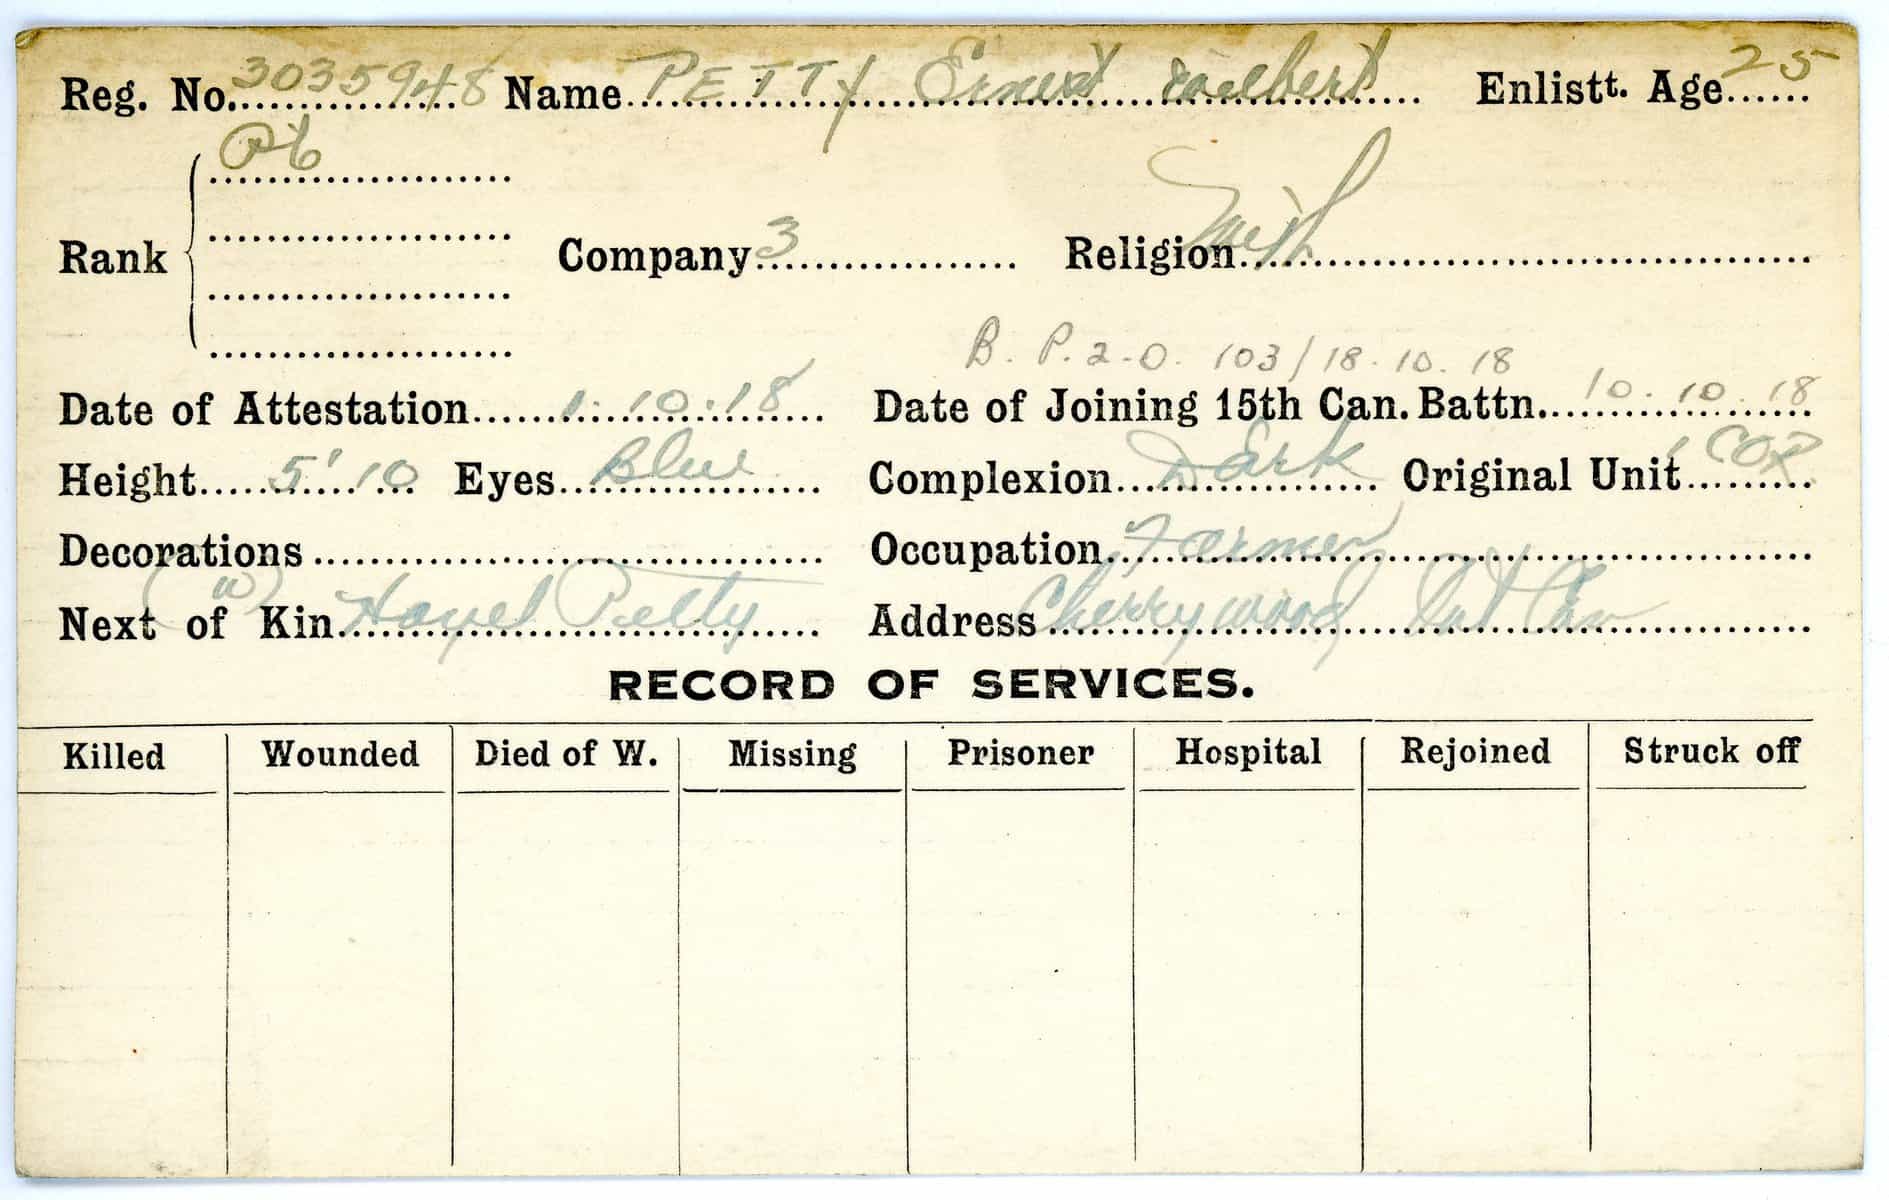 Reg. No. 3035948 Name PETTY Ernest Enlistt. Age 25
Pte
Rank Company 3 Religion
B. P. 2-0. 103/18.10.18
Date of Attestation 1.10.18 Date of Joining 15th Can. Battn. 10.10.18
Height 5' 10 Eyes Blue Complexion Dark Original Unit 1 COR
Decorations Occupation Farmer
Next of Kin (W) Hazel Petty Address Cherrywood Ont Can
RECORD OF SERVICES.
Killed Wounded Died of W. Missing Prisoner Hospital Rejoined Struck off